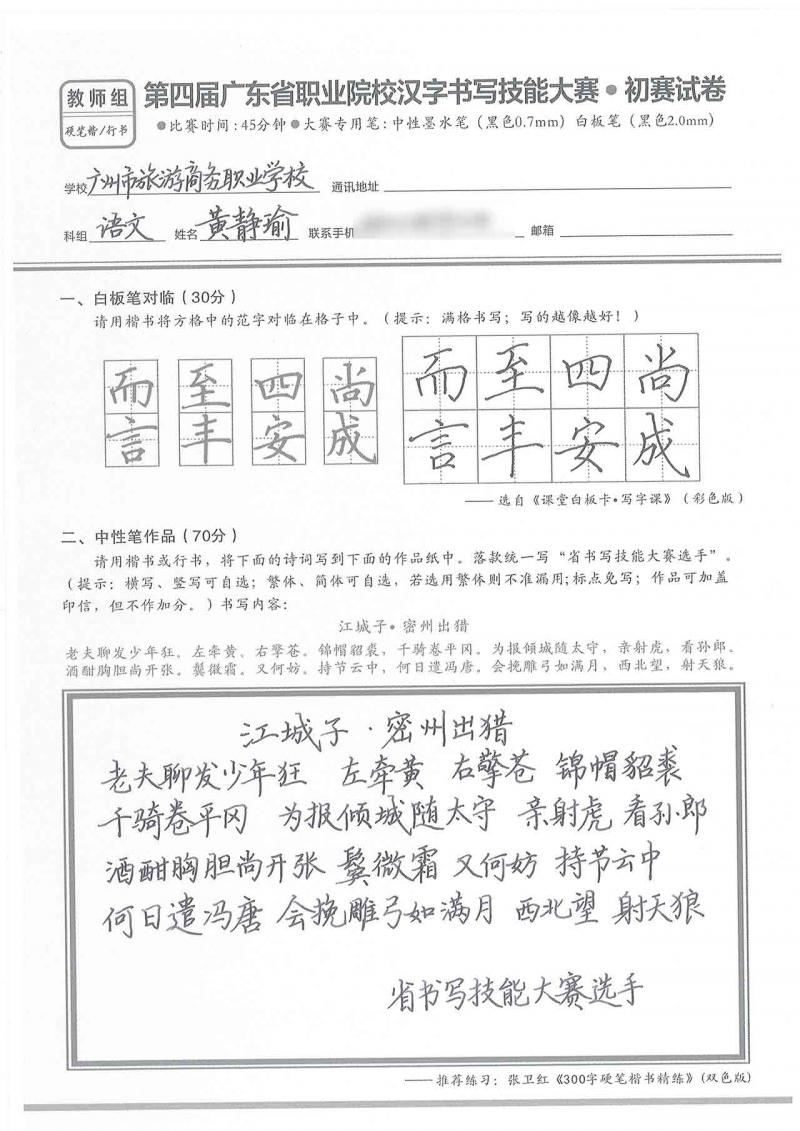 教师组
硬笔楷/行书
第四届广东省职业院校汉字书写技能大赛•初赛试卷
●比赛时间:45分钟●大赛专用笔:中性墨水笔(黑色0.7mm)白板笔(黑色2.0mm)
学校 广州市旅游商务职业学校 通讯地址
科组 语文 姓名 黄静瑜 联系手机 邮箱
一、白板笔对临(30分)
请用楷书将方格中的范字对临在格子中。(提示:满格书写;写的越像越好!)
而 至 四 尚 而 至 四 尚
言 丰 安 成 言 丰 安 成
——选自《课堂白板卡•写字课》(彩色版)
二、中性笔作品(70分)
请用楷书或行书,将下面的诗词写到下面的作品纸中。落款统一写“省书写技能大赛选手”。
(提示:横写、竖写可自选;繁体、简体可自选,若选用繁体则不准漏用;标点免写;作品可加盖
印信,但不作加分。)书写内容:
江城子•密州出猎
老夫聊发少年狂。左牵黄。右擎苍。锦帽貂裘,千骑卷平冈。为报倾城随太守,亲射虎,看孙郎。
酒酣胸胆尚开张。鬓微霜。又何妨。持节云中,何日遣冯唐。会挽雕弓如满月,西北望,射天狼。
江城子·密州出猎
老夫聊发少年狂 左牵黄 右擎苍 锦帽貂裘
千骑卷平冈 为报倾城随太守 亲射虎 看孙郎
酒酣胸胆尚开张 鬓微霜 又何妨 持节云中
何日遣冯唐 会挽雕弓如满月 西北望 射天狼
省书写技能大赛选手
——推荐练习:张卫红《300字硬笔楷书精练》(双色版)